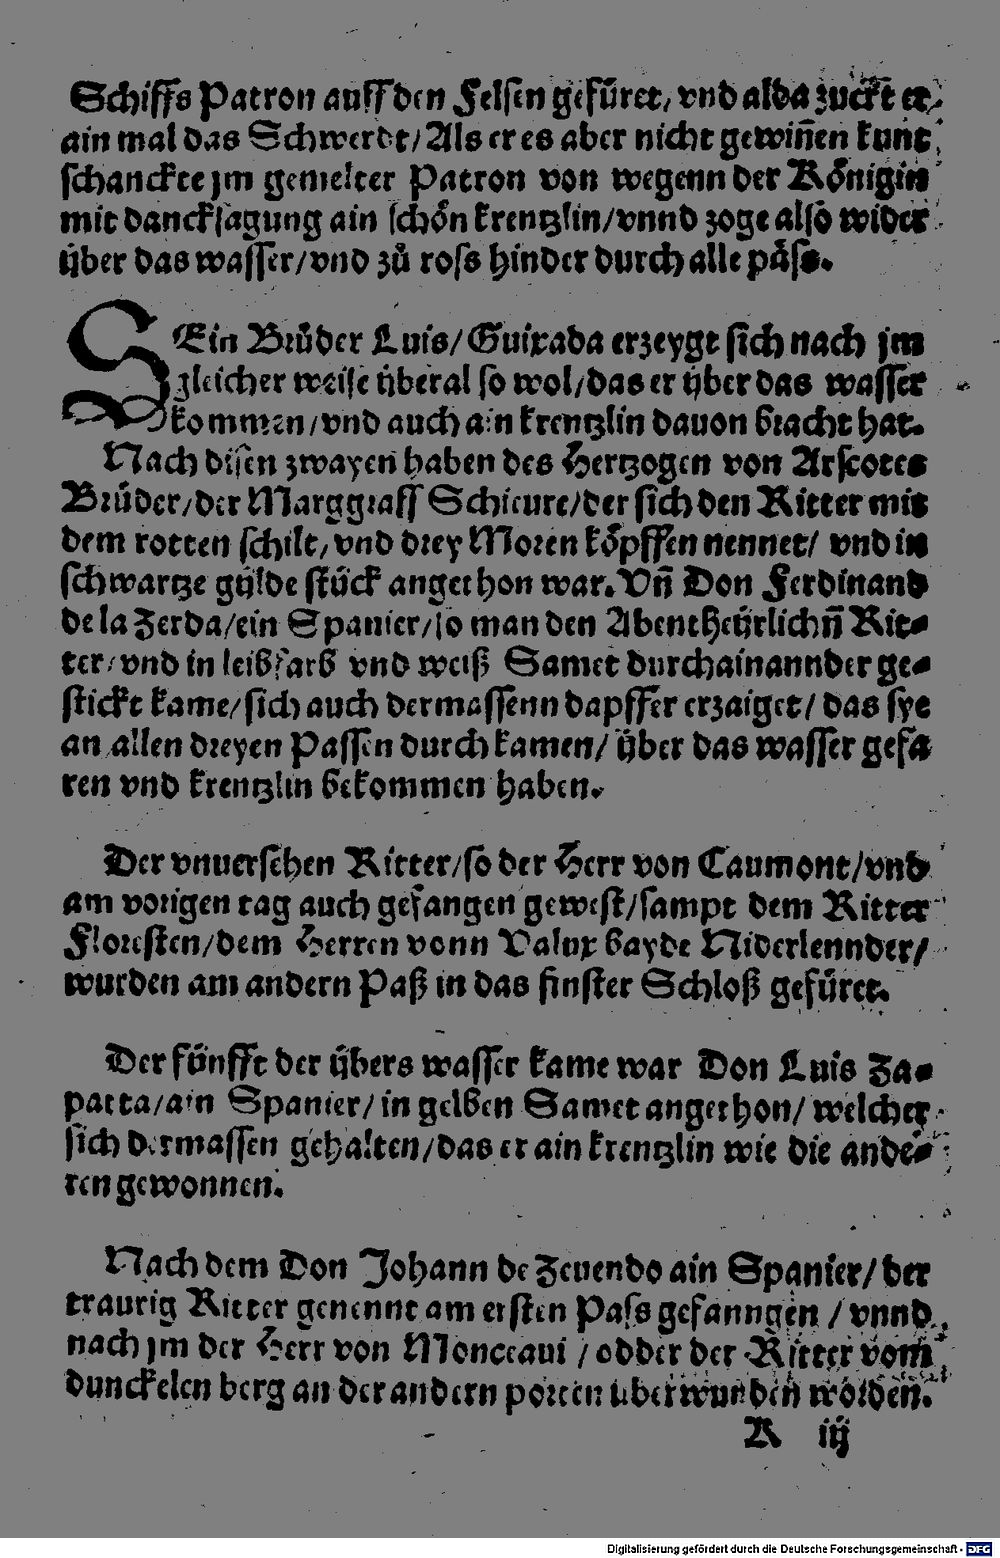 Schiffs Patron auff den Felsen gefüret, vnd alda zuckt er
ain mal das Schwerdt/Als er es aber nicht gewiñen kunt
schanckte jm gemelter Patron von wegenn der Königin
mit dancksagung ain schön krentzlin/vnnd zoge also wider
über das wasser/vnd zů ross hinder durch alle päss.
SEin Brůder Luis/Guixada erzeygt sich nach jm
gleicher weise überal so wol/das er über das wasser
kommen/vnd auch ain krentzlin dauon bracht hat.
Nach disen zwayen haben des Hertzogen von Arscotes
Brůder/der Marggraff Schieure/der sich den Ritter mit
dem rotten schilt, vnd drey Moren köpffen nennet/ vnd in
schwartze gülde stück angethon war. Vñ Don Ferdinand
de la Zerda/ein Spanier/so man den Abentheürlichñ Rit-
ter/vnd in leibfarb vnd weiß Samet durchainannder ge-
stickt kame/sich auch dermassenn dapffer erzaiget/ das sye
an allen dreyen Passen durch kamen/ über das wasser gefa
ren vnd krentzlin bekommen haben.
Der vnuersehen Ritter/so der Herr von Caumont/vnd
am vorigen tag auch gefangen gewest/sampt dem Ritter
Floresten/dem Herren vonn Valux bayde Niderlennder/
wurden am andern Paß in das finster Schloß gefüret.
Der fünfft der übers wasser kame war Don Luis Za-
patta/ain Spanier/in gelben Samet angethon/ welcher
sich dermassen gehalten/das er ain krentzlin wie die ande-
ren gewonnen.
Nach dem Don Johann de Zeuendo ain Spanier/ der
traurig Ritter genennt am ersten Pass gefanngen / vnnd
nach jm der Herr von Monceaui / odder der Ritter vom
dunckelen berg an der andern porten überwunden worden.
R iij
Digitalisierung gefördert durch die Deutsche Forschungsgemeinschaft - DFG